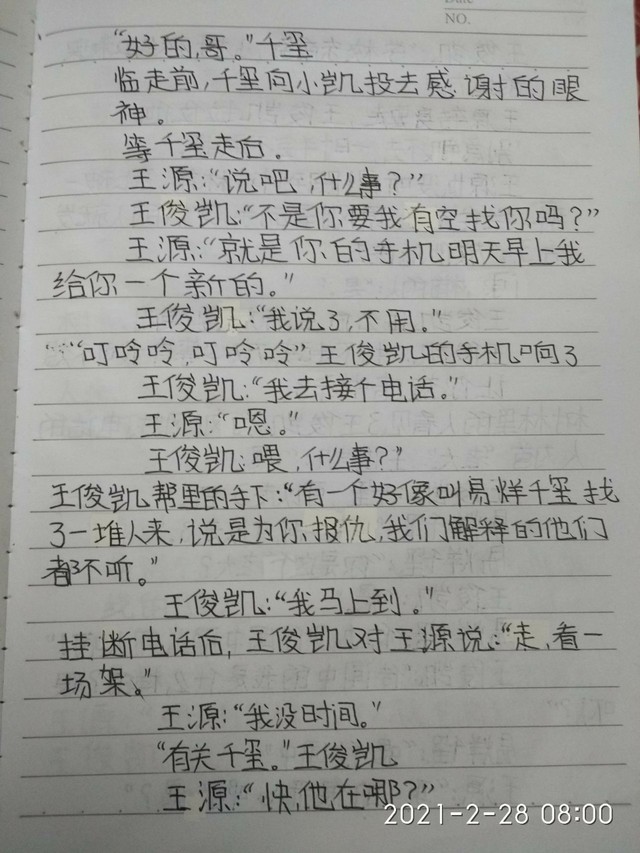 Date
NO.
“好的,哥。”千玺
临走前,千玺向小凯投去感谢的眼
神。
等千玺走后。
王源:“说吧,什么事?”
王俊凯:“不是你要我有空找你吗?”
王源:“就是你的手机明天早上我
给你一个新的。”
王俊凯:“我说了,不用。”
“““叮呤呤,叮呤呤”王俊凯的手机响了
王俊凯:“我去接个电话。”
王源:“嗯。”
王俊凯:喂,什么事?”
王俊凯帮里的手下:“有一个好像叫易烊千玺找
了一堆人来,说是为你报仇,我们解释的他们
都不听。”
王俊凯:“我马上到。”
挂断电话后,王俊凯对王源说:“走,看一
场架。”
王源:“我没时间。”
“有关千玺。”王俊凯
王源:“快,他在哪?”
2021-2-28 08:00